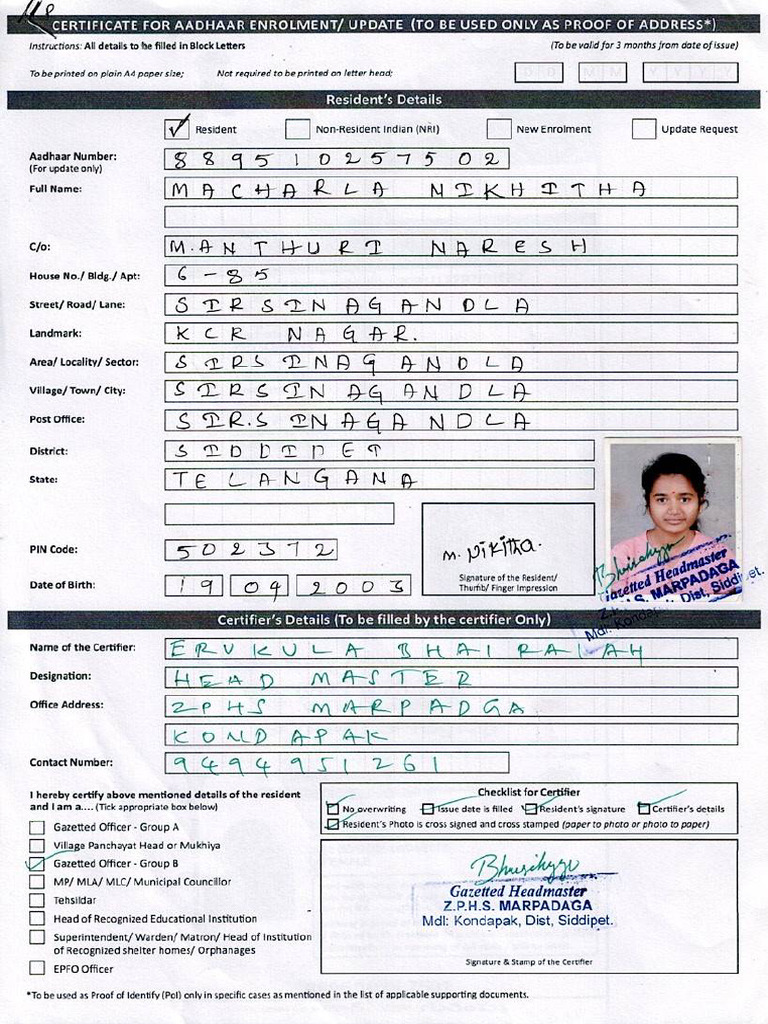 CERTIFICATE FOR AADHAAR ENROLMENT/ UPDATE (TO BE USED ONLY AS PROOF OF ADDRESS*)
Instructions: All details to be filled in Block Letters (To be valid for 3 months from date of issue)
To be printed on plain A4 paper size; Not required to be printed on letter head; D D M M Y Y Y Y
Resident's Details
Resident Non-Resident Indian (NRI) New Enrolment Update Request
Aadhaar Number: 889510257502
(For update only)
Full Name: MACHARLA NIKHITHA
C/o: MANTHURI NARESH
House No./ Bldg./ Apt: 6-85
Street/ Road/ Lane: SIRSINAGANDLA
Landmark: KCR NAGAR.
Area/ Locality/ Sector: SIRSINAGANDLA
Village/ Town/ City: SIRSINAGANDLA
Post Office: SIRSINAGANDLA
District: SIDDIPET
State: TELANGANA
PIN Code: 502372
M. Nikitha.
Signature of the Resident/
Thumb/ Finger Impression
Date of Birth: 19 04 2003
Gazetted Headmaster
Z.P.H.S. MARPADAGA
Mdl: Kondapak, Dist, Siddipet.
Certifier's Details (To be filled by the certifier Only)
Name of the Certifier: ERUKULA BHAIRAIAH
Designation: HEAD MASTER
Office Address: ZPHS MARPADGA
KONDAPAK
Contact Number: 9494951261
I hereby certify above mentioned details of the resident
and I am a.... (Tick appropriate box below)
Gazetted Officer - Group A
Village Panchayat Head or Mukhiya
Gazetted Officer - Group B
MP/ MLA/ MLC/ Municipal Councillor
Tehsildar
Head of Recognized Educational Institution
Superintendent/ Warden/ Matron/ Head of Institution
of Recognized shelter homes/ Orphanages
EPFO Officer
Checklist for Certifier
No overwriting Issue date is filled Resident's signature Certifier's details
Resident's Photo is cross signed and cross stamped (paper to photo or photo to paper)
Gazetted Headmaster
Z.P.H.S. MARPADAGA
Mdl: Kondapak, Dist, Siddipet.
Signature & Stamp of the Certifier
*To be used as Proof of Identify (PoI) only in specific cases as mentioned in the list of applicable supporting documents.